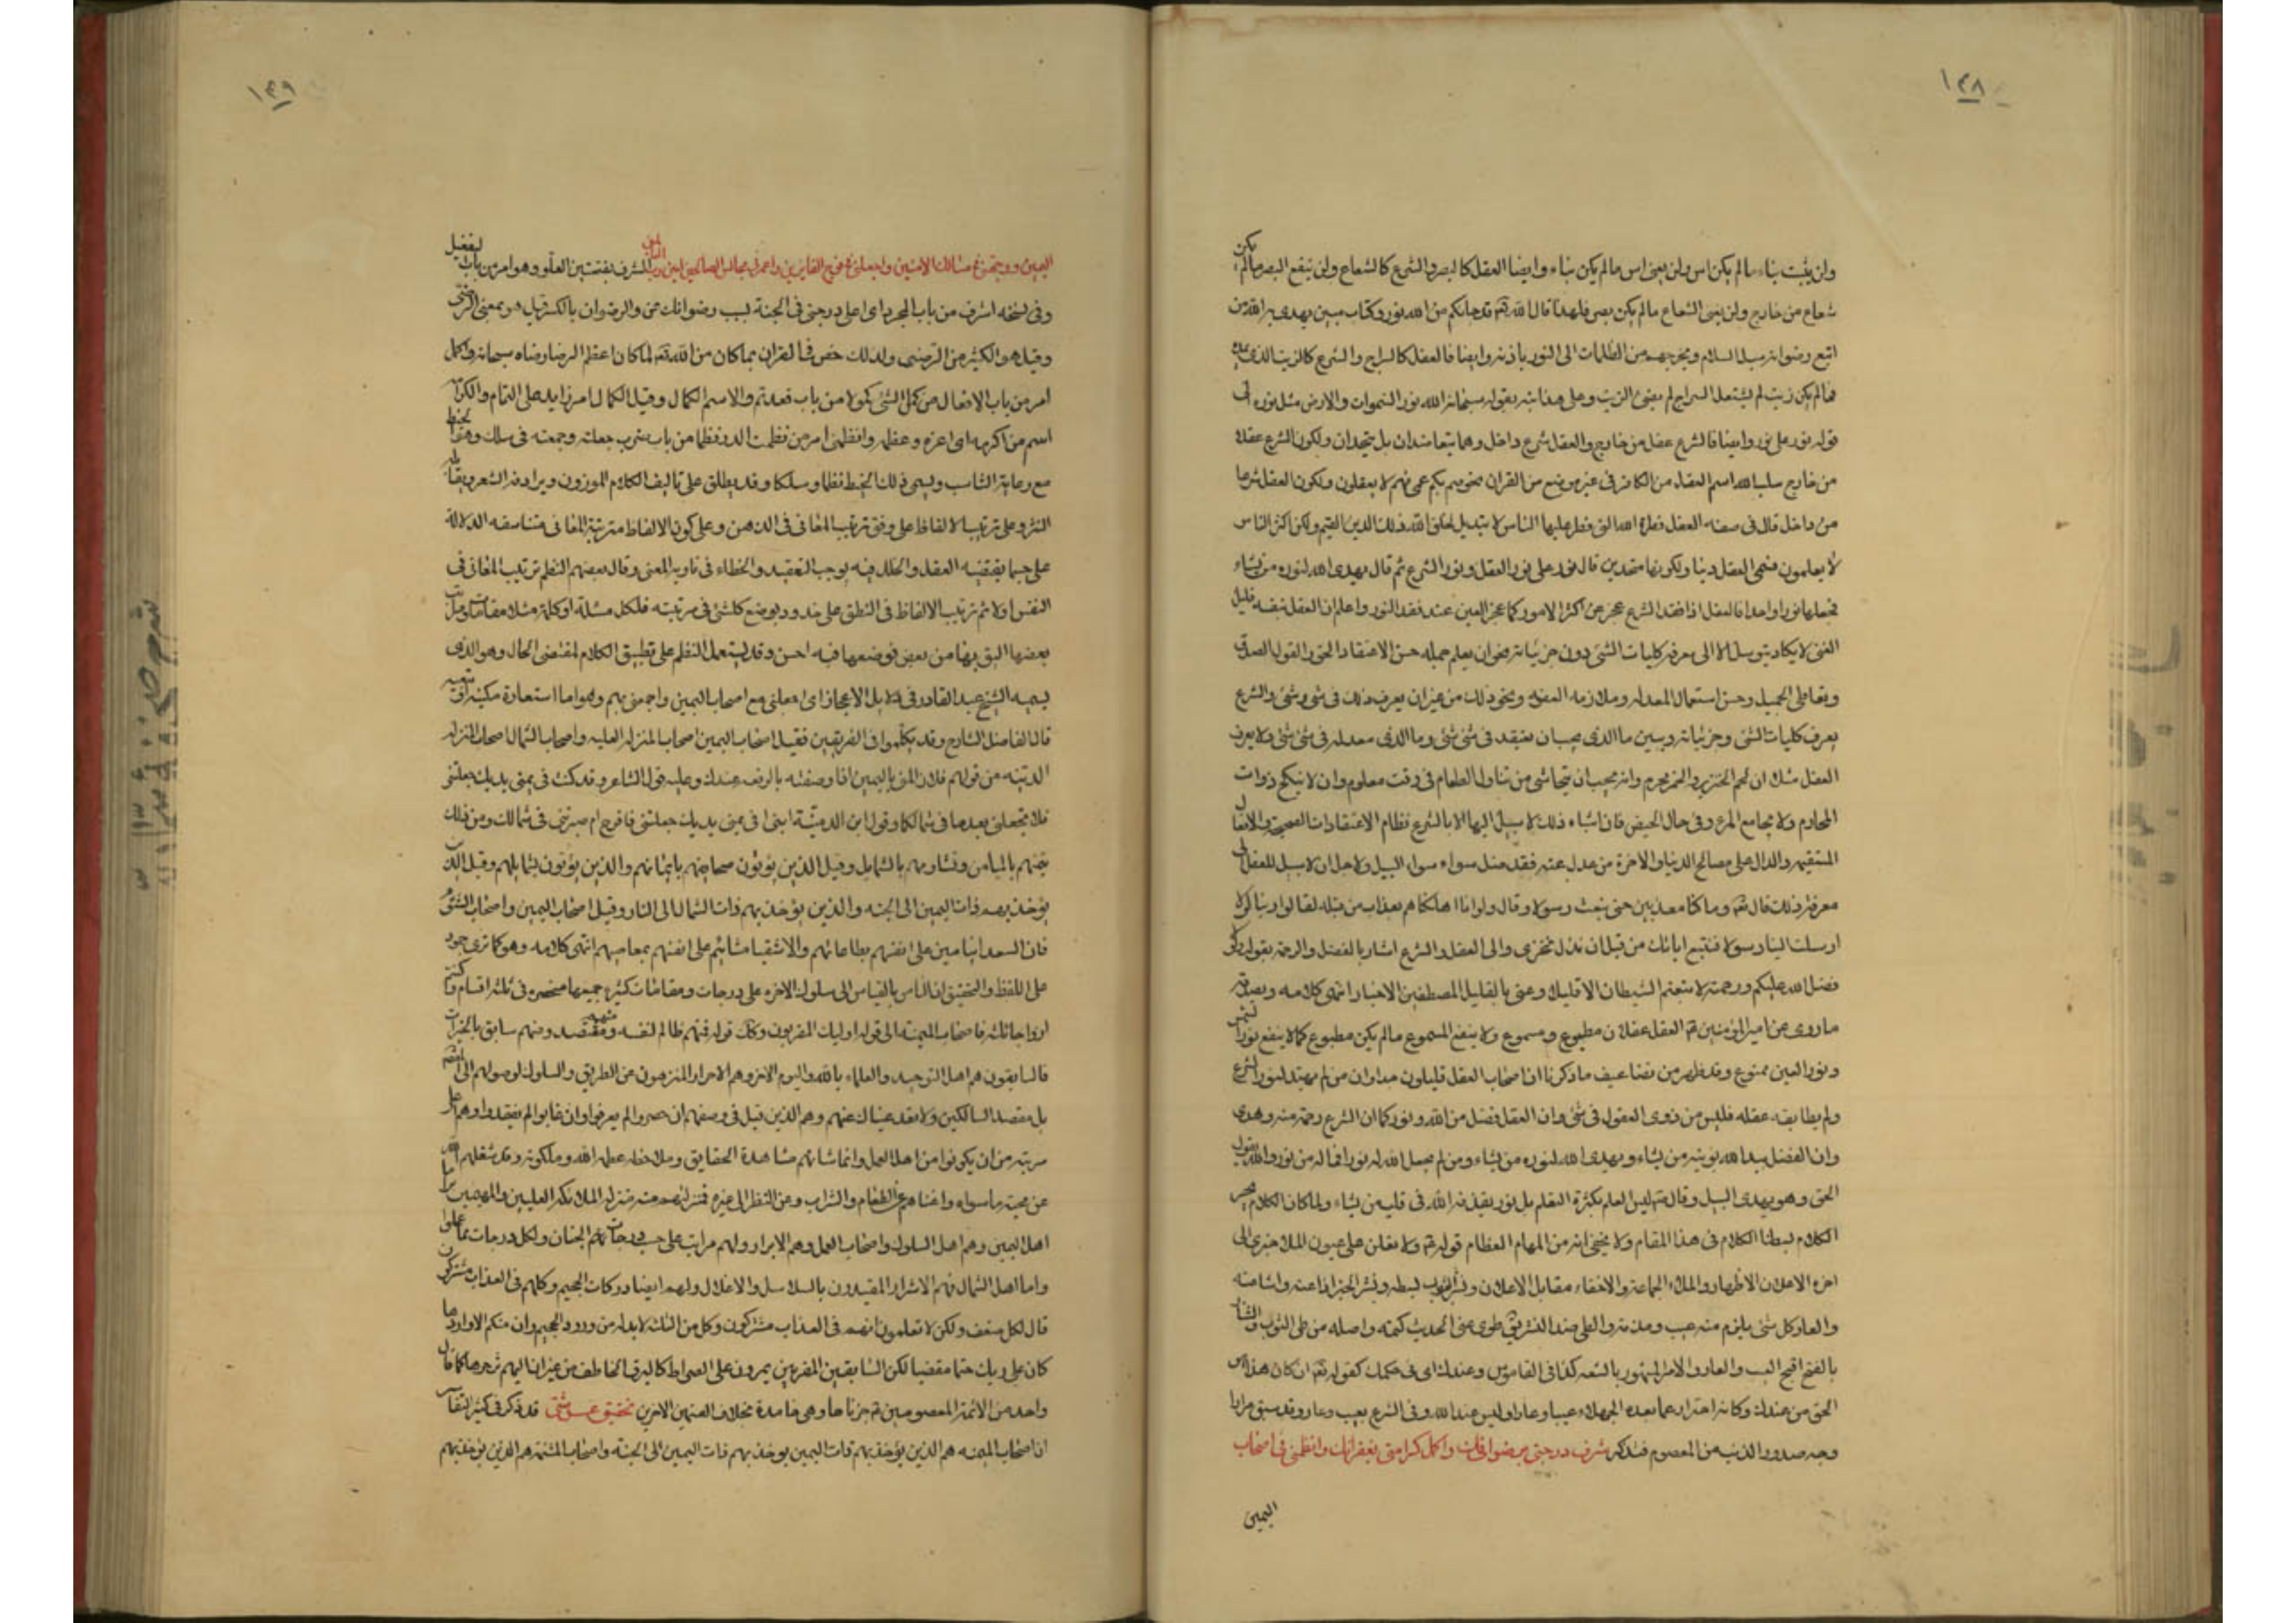 ١٣٨
ولن يثبت بناء ما لم يكن اس ولن يغنى اس ما لم يكن بناء وايضا العقل كالبصر والشرع كالشعاع ولن ينفع البصر ما لم يكن
شعاع من خارج ولن يغنى الشعاع ما لم يكن بصر فلهذا قال الله تعٓ قد جائكم من الله نور وكتاب مبين يهدى به الله من
اتبع رضوانه سبل السلام ويخرجهم من الظلمات الى النور باذنه وايضا فالعقل كالسراج والشرع كالزيت الذى يمده
فما لم يكن زيت لم يشتعل السراج لم يضئ الزيت وعلى هذا نبه بقوله سبحانه الله نور السموات والارض مثل نوره الى
قوله نور على نور وايضا فالشرع عقل من خارج والعقل شرع داخل وهما يتعاضدان بل يتحدان ولكون الشرع عقلا
من خارج سلب الله اسم العقل من الكافر فى غير موضع من القران نحو صم بكم عمى فهم لا يعقلون ولكون العقل شرعا
من داخل قال فى صفة العقل فطرة الله التى فطر عليها الناس لا تبديل لخلق الله ذلك الدين القيم ولكن اكثر الناس
لا يعلمون فسمى العقل دينا ولكونهما متحدين قال نور على نور العقل ونور الشرع ثم قال يهدى الله لنوره من يشاء
فجعلها نورا واحدا فالعقل اذا فقد الشرع عجز عن اكثر الامور كما عجز العين عند فقد النور واعلم ان العقل بنفسه قليل
الغنى لا يكاد يتوسل الا الى معرفة كليات الشئ دون جزئياته نحو ان يعلم جملة حسن الاعتقاد الحق والقول الصدق
وتعاطى الجميل وحسن استعمال المعدلة وملازمة العفة ونحو ذلك من غير ان يعرف ذلك فى شئ وشئ والشرع
يعرف كليات الشئ وجزئياته ويبين ما الذى يجب ان يعتقد فى شئ شئ وما الذى معدلة فى شئ شئ ولا يعرف
العقل مثلا ان لحم الخنزير والخمر محرم وانه يجب ان يتحاشى من تناول الطعام فى وقت معلوم وان لا ينكح ذوات
المحارم ولا يجامع المرءة فى حال الحيض فان اشباء ذلك لا سبيل اليها الا بالشرع نظام الاعتقادات الصحيحة والافعال
المستقيمة والدال على مصالح الدنيا والاخرة من عدل عنه فقد ضل سواء سواء السبيل ولاجل ان لا سبيل للعقل الى
معرفة ذلك قال تعٓ وما كنا معذبين حتى نبعث رسولا وقال ولو انا اهلكناهم بعذاب من قبله لقالوا ربنا لولا
ارسلت الينا رسولا فنتبع اياتك من قبل ان نذل ونخزى والى العقل والشرع اشار بالفضل والرحمة بقوله ولولا
فضل الله عليكم ورحمته لاتبعتم الشيطان الا قليلا وعنى بالقليل المصطفين الاخيار انتهى كلامه ويصدقه
ما روى عن امير المؤمنين عٓ العقل عقلان مطبوع ومسموع ولا ينفع المسموع ما لم يكن مطبوع كما لا ينفع نور الشمس
ونور العين ممنوع وقد ظهر من تضاعيف ما ذكرنا ان اصحاب العقل قليلون جدا وان من لم يهتد لنور الشرع
ولم يطابقه عقله فليس من ذوى العقول فى شئ وان العقل فضل من الله ونور كما ان الشرع رحمة منه وهدى
وان الفضل بيد الله يؤتيه من يشاء ويهدى الله لنوره من يشاء ومن لم يجعل الله له نورا فما له من نور والله يقول
الحق وهو يهدى السبيل وقال عٓ ليس العلم بكثرة التعلم بل نور يقذفه الله فى قلب من يشاء ولما كان الكلام يجر
الكلام بسطنا الكلام فى هذا المقام ولا يخفى انه من المهام العظام قوله عٓ ولا تعلن على عيون الملاء خبرى الى
اخره الاعلان الاظهار والملاء الجماعة والاخفاء مقابل الاعلان ونشر الثوب بسطه ونشر الخبر اذاعته واشاعته
والعار كل شئ يلزم منه عيب ومذمة والطى ضد النشر طوى عنى الحديث كتمه واصله من طى الثوب والشنار
بالفتح اقبح العيب والعار والامر المشهور بالشنعة كذا فى القاموس وعندك اى فى حكمك كقوله تعٓ ان كان هذا هو
الحق من عندك وكانه احتراز عما يعده الجهلاء عيبا وعارا وليس عند الله وفى الشرع بعيب وعار وقد سبق مرارا
وجه صدور الذنب من المعصوم فتذكر شرف درجتى برضوانك واكمل كرامتى بغفرانك وانظمنى فى اصحاب
اليمين
١٣٩
اليمين ووجهنى فى مسالك الامنين واجعلنى فى فوج الفايزين واعمر لى مجالس الصالحين امين رب العالمين الشرف بفتحتين العلو وهو امر من باب التفعيل
وفى نسخة اشرف من باب المجرد اى اعلى درجتى فى الجنة بسبب رضوانك عنى والرضوان بالكسر قيل هو بمعنى الرضى
وقيل هو الكثير من الرضى ولذلك خص فى القران بما كان من الله تعٓ لما كان اعظم الرضا رضاه سبحانه واكمل
امر من باب الافعال من كمل الشئ كمولا من باب قعد تم والاسم الكمال وقيل الكمال امر زايد على التمام والكرامة
اسم من اكرمه اى اعزه وعظمه وانظمنى امر من نظمت الدر نظما من باب ضرب جعلته وجمعته فى سلك وهو الخيط
مع رعاية التناسب ويسمى ذلك الخيط نظما وسلكا وقد يطلق على تاليف الكلام الموزون ويرادفه الشعر ويقابله
النثر وعلى ترتيب الالفاظ على وفق ترتيب المعانى فى الذهن وعلى كون الالفاظ مترتبة المعانى متناسقة الدلالة
على حسب ما يقتضيه العقل والخلل فيه يوجب التعقيد والخطاء فى تادية المعنى وقال بعضهم النظم ترتيب المعانى فى
النفس اولا ثم ترتيب الالفاظ فى النطق على حذوه ويوضع كل شئ فى مرتبته فلكل مسئلة او كلمة مثلا مقامات ومراتب
بعضها اليق بها من بعض فوضعها فيه احسن وقد يستعمل النظم على تطبيق الكلام لمقتضى الحال وهو الذى
يسميه الشيخ عبد القادر فى دلايل الاعجاز اى اجعلنى مع اصحاب اليمين واجمعنى بهم وهو اما استعارة مكنية او تبعية
قال الفاضل الشارح وقد تكلموا فى الفريقين فقيل اصحاب اليمين اصحاب المنزلة العلية واصحاب الشمال اصحاب المنزلة
الدنية من قولهم فلان منى باليمين اذا وصفته بالرفعة عندك وعليه قول الشاعر وقد كنت فى يمنى يديك جعلتنى
فلا تجعلنى بعدها فى شمالكا وقول ابن الدمينة ابينى افى يمنى يديك جعلتنى فافرح ام صيرتنى فى شمالك ومن ذلك
تيمنهم بالميامن وتشاومهم بالشمايل وقيل الذين يؤتون صحايفهم بايمانهم والذين يؤتون بشمايلهم وقيل الذين
يؤخذ بهم ذات اليمين الى الجنة والذين يؤخذ بهم ذات الشمال الى النار وقيل اصحاب اليمين واصحاب الشوم
فان السعداء ميامين على انفسهم بطاعاتهم والاشقياء مشائيم على انفسهم بمعاصيهم انتهى كلامه وهو كما ترى جمود
على اللفظ والتحقيق ان الناس بالقياس الى سلوك الاخرة على درجات ومقامات كثيرة جميعها منحصرة فى ثلثة اقسام وكنتم
ازواجا ثلثة فاصحاب الميمنة الى قوله اولئك المقربون وكذا قوله فمنهم ظالم لنفسه ومنهم مقتصد ومنهم سابق بالخيرات
فالسابقون هم اهل التوحيد والعلماء بالله واليوم الاخر وهم الاحرار المنزهون عن الطريق والسلوك لوصولهم الى
بل مقصد السالكين ولا تعد عيناك عنهم وهم الذين قيل فى وصفهم ان حضروا لم يعرفوا وان غابوا لم يفقدوا وهم اعلى
مرتبة من ان يكونوا من اهل العمل وانما شانهم مشاهدة الحقايق وملاحظة عظمة الله وملكوته وقد شغلهم الله
عن محبة ما سواه واغناهم عن الطعام والشراب وعن النظر الى غيره فمنزلتهم منه منزلة الملائكة العليين والمهيمين واما
اهل اليمين وهم اهل السلوك واصحاب العمل وهم الابرار ولهم مراتب على حسب درجات نعيم الجنان ولكل درجات مما عملوا
واما اهل الشمال فهم الاشرار المقيدون بالسلاسل والاغلال ولهم ايضا دركات الجحيم وكلهم فى العذاب مشتركون
قال لكل ضعف ولكن لا تعلمون انهم فى العذاب مشتركون وكل من الثلثة لا بد له من ورود الجحيم وان منكم الا واردها
كان على ربك حتما مقضيا لكن السابقين المقربين يمرون على الصراط كالبرق الخاطف من غير ان ينالهم شرها كما قال
واحد من الائمة المعصومين عٓ جزناها وهى خامدة بخلاف القسمين الاخرين تحقيق عرشى قد ذكر فى كثير التفاسير
ان اصحاب الميمنة هم الذين يؤخذ بهم ذات اليمين يوخذ بهم ذات اليمين الى الجنة واصحاب المشئمة هم الذين يؤخذ بهم